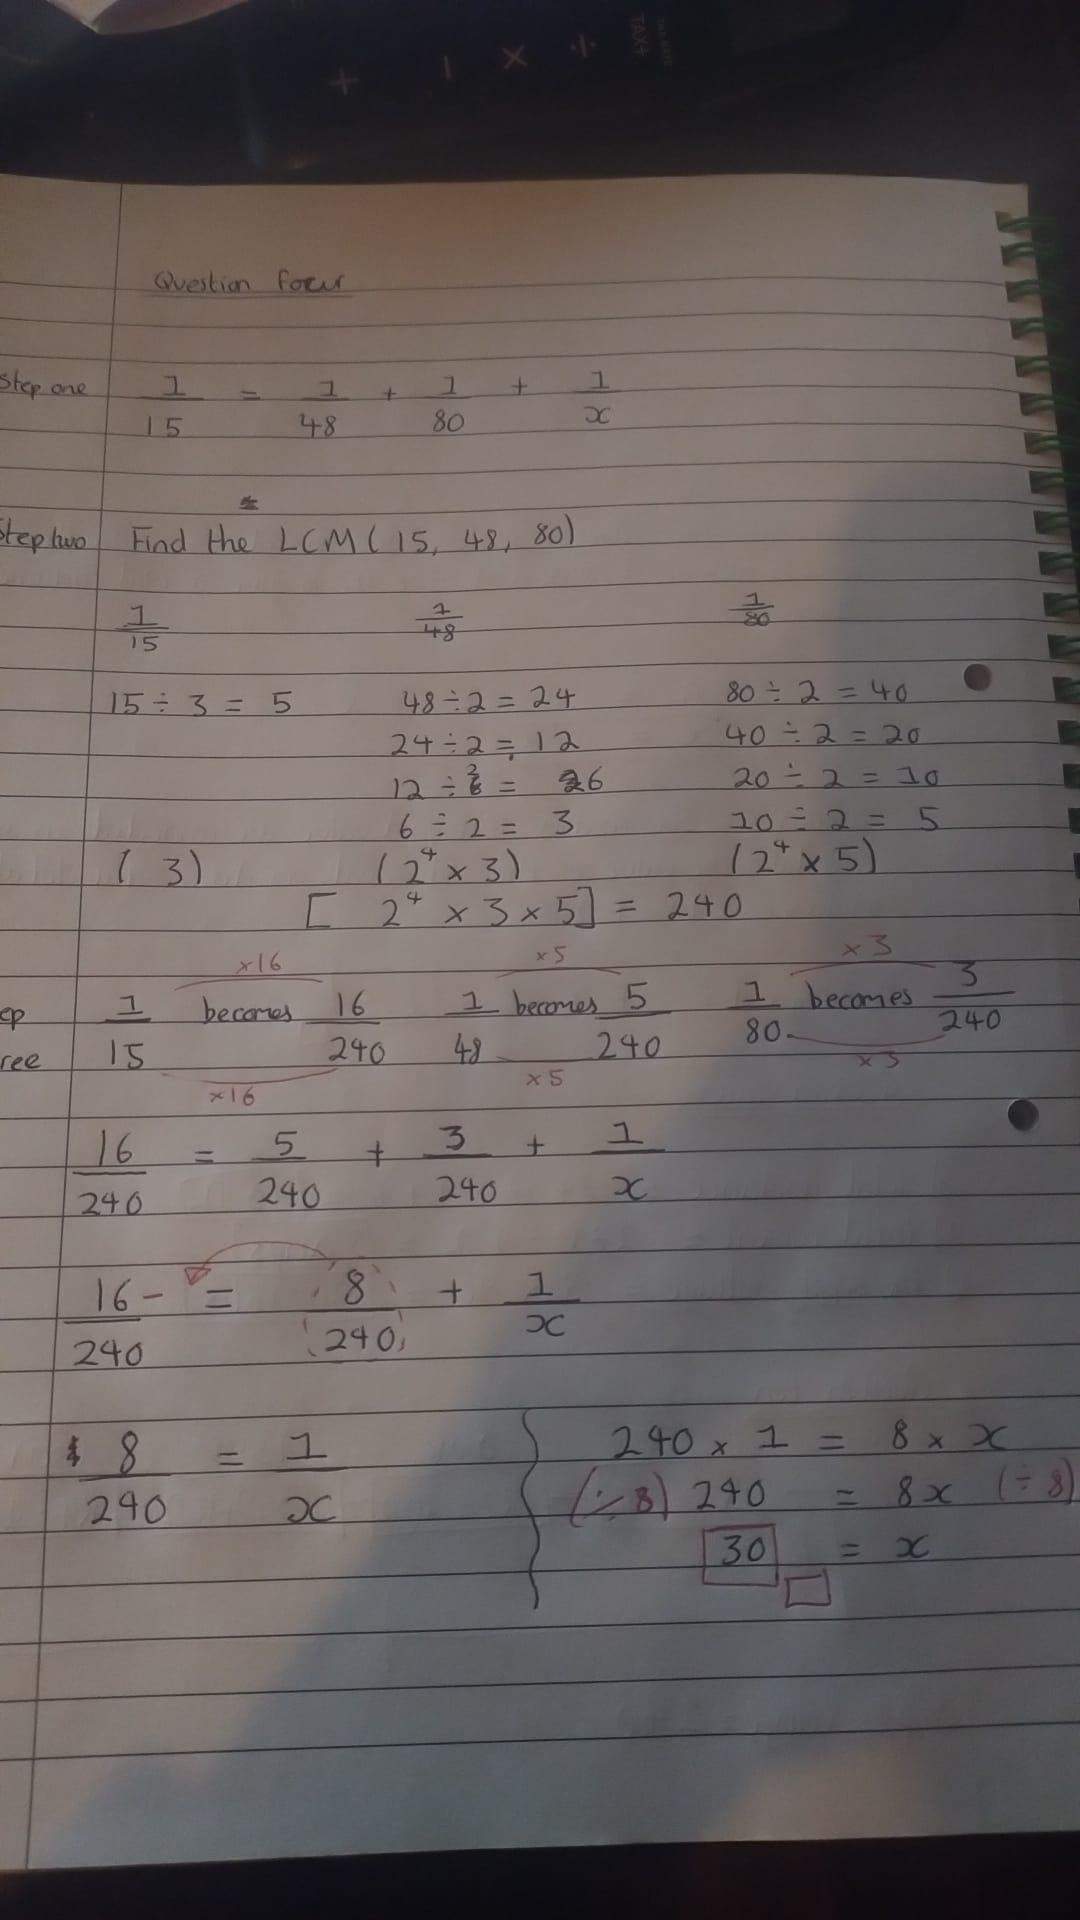 + − × ÷ TAX+
Question focus
Step one 1/15 = 1/48 + 1/80 + 1/x
Step two Find the LCM ( 15, 48, 80)
1/15 1/48 1/80
15 ÷ 3 = 5 48 ÷ 2 = 24 80 ÷ 2 = 40
24 ÷ 2 = 12 40 ÷ 2 = 20
12 ÷ 2 = 6 20 ÷ 2 = 10
6 ÷ 2 = 3 10 ÷ 2 = 5
( 3) (2⁴ × 3) (2⁴ × 5)
[ 2⁴ × 3 × 5] = 240
×16 ×5 ×3
ep ree 1/15 becomes 16/240 1/48 becomes 5/240 1/80 becomes 3/240
×16 ×5 ×3
16/240 = 5/240 + 3/240 + 1/x
16/240 − = 8/240 + 1/x
8/240 = 1/x
240 × 1 = 8 × x
(÷ 8) 240 = 8x (÷ 8)
30 = x